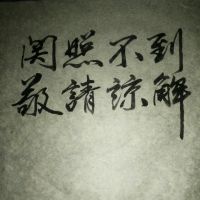 関照不到
敬請諒解